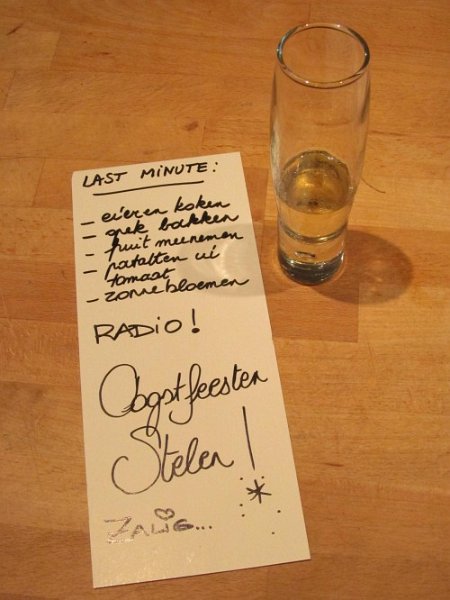 LAST MINUTE:
- eieren koken
- spek bakken
- fruit meenemen
- patatten ui
tomaat
- zonnebloemen
RADIO!
Oogstfeesten
Stelen!
ZALIG...